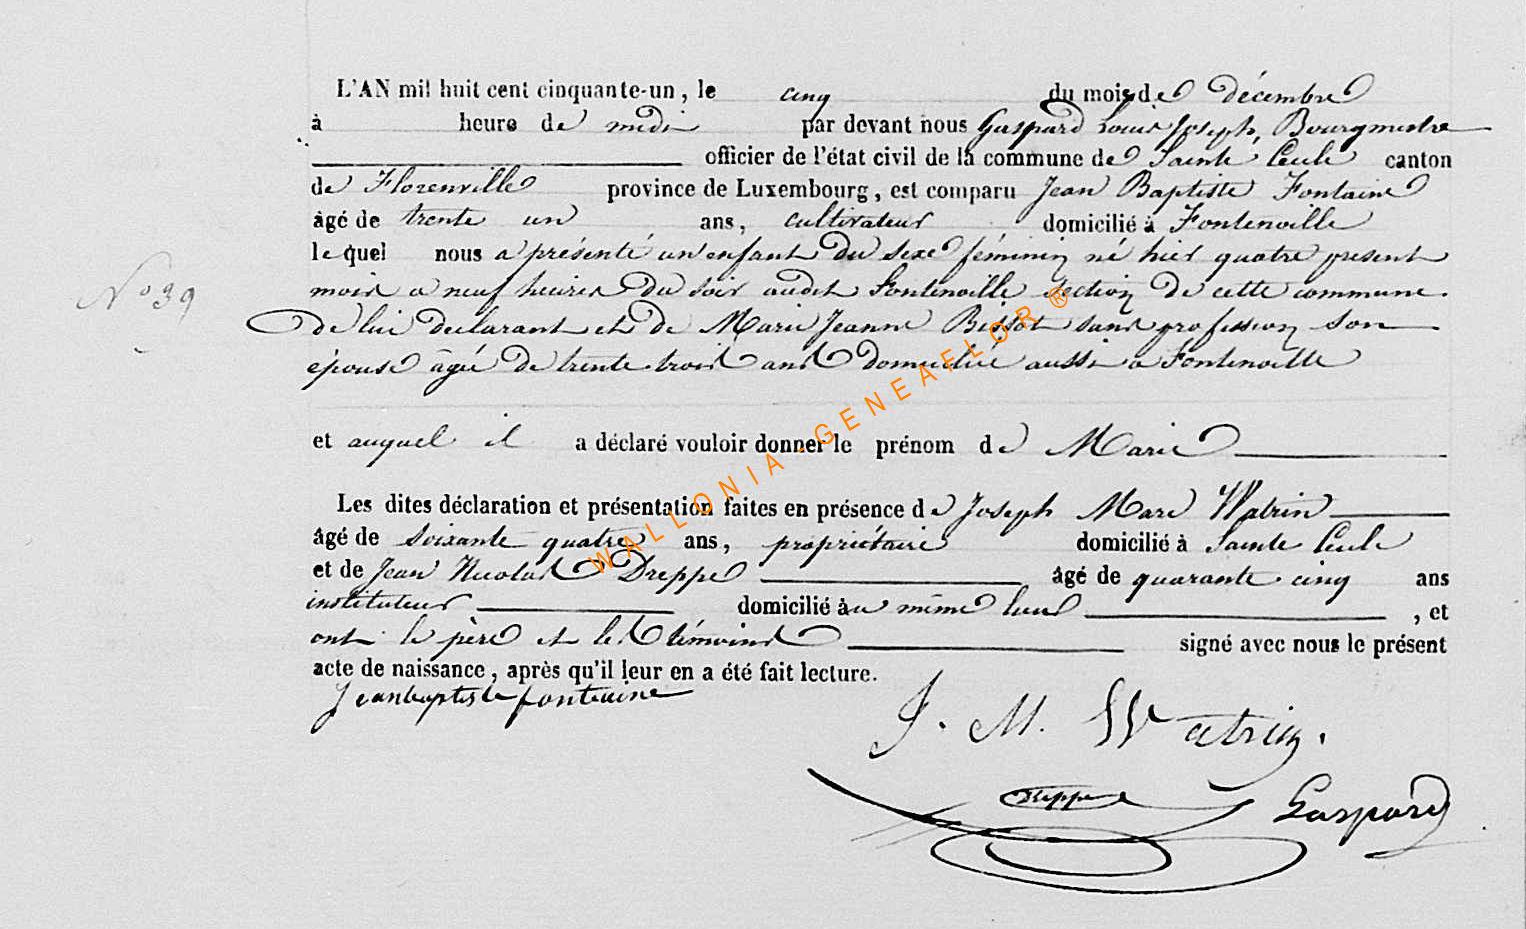 L'AN mil huit cent cinquante-un, le cinq du mois de décembre
à heure de midi par devant nous Gaspard Louis Joseph, Bourgmestre
officier de l'état civil de la commune de Sainte Cécile canton
de Florenville province de Luxembourg, est comparu Jean Baptiste Fontaine
âgé de trente un ans, cultivateur domicilié à Fontenoille
le quel nous a présenté un enfant du sexe féminin né hier quatre présent
N° 39
mois a neuf heures du soir audit Fontenoille section de cette commune.
de lui declarant et de Marie Jeanne Bissot sans profession son
épouse âgée de trente trois ans domiciliée aussi a Fontenoille
et auquel il a déclaré vouloir donner le prénom de Marie
Les dites déclaration et présentation faites en présence de Joseph Marc Watrin
âgé de soixante quatre ans, propriétaire domicilié à Sainte Cécile
et de Jean Nicolas Dreppe âgé de quarante cinq ans
instituteur domicilié au même lieu, et
ont le père et les témoins signé avec nous le présent
acte de naissance, après qu'il leur en a été fait lecture.
Jeanbaptiste fontaine
J. M. Watrin.
Dreppe Gaspard
WALLONIA-GENEAFLOR ®